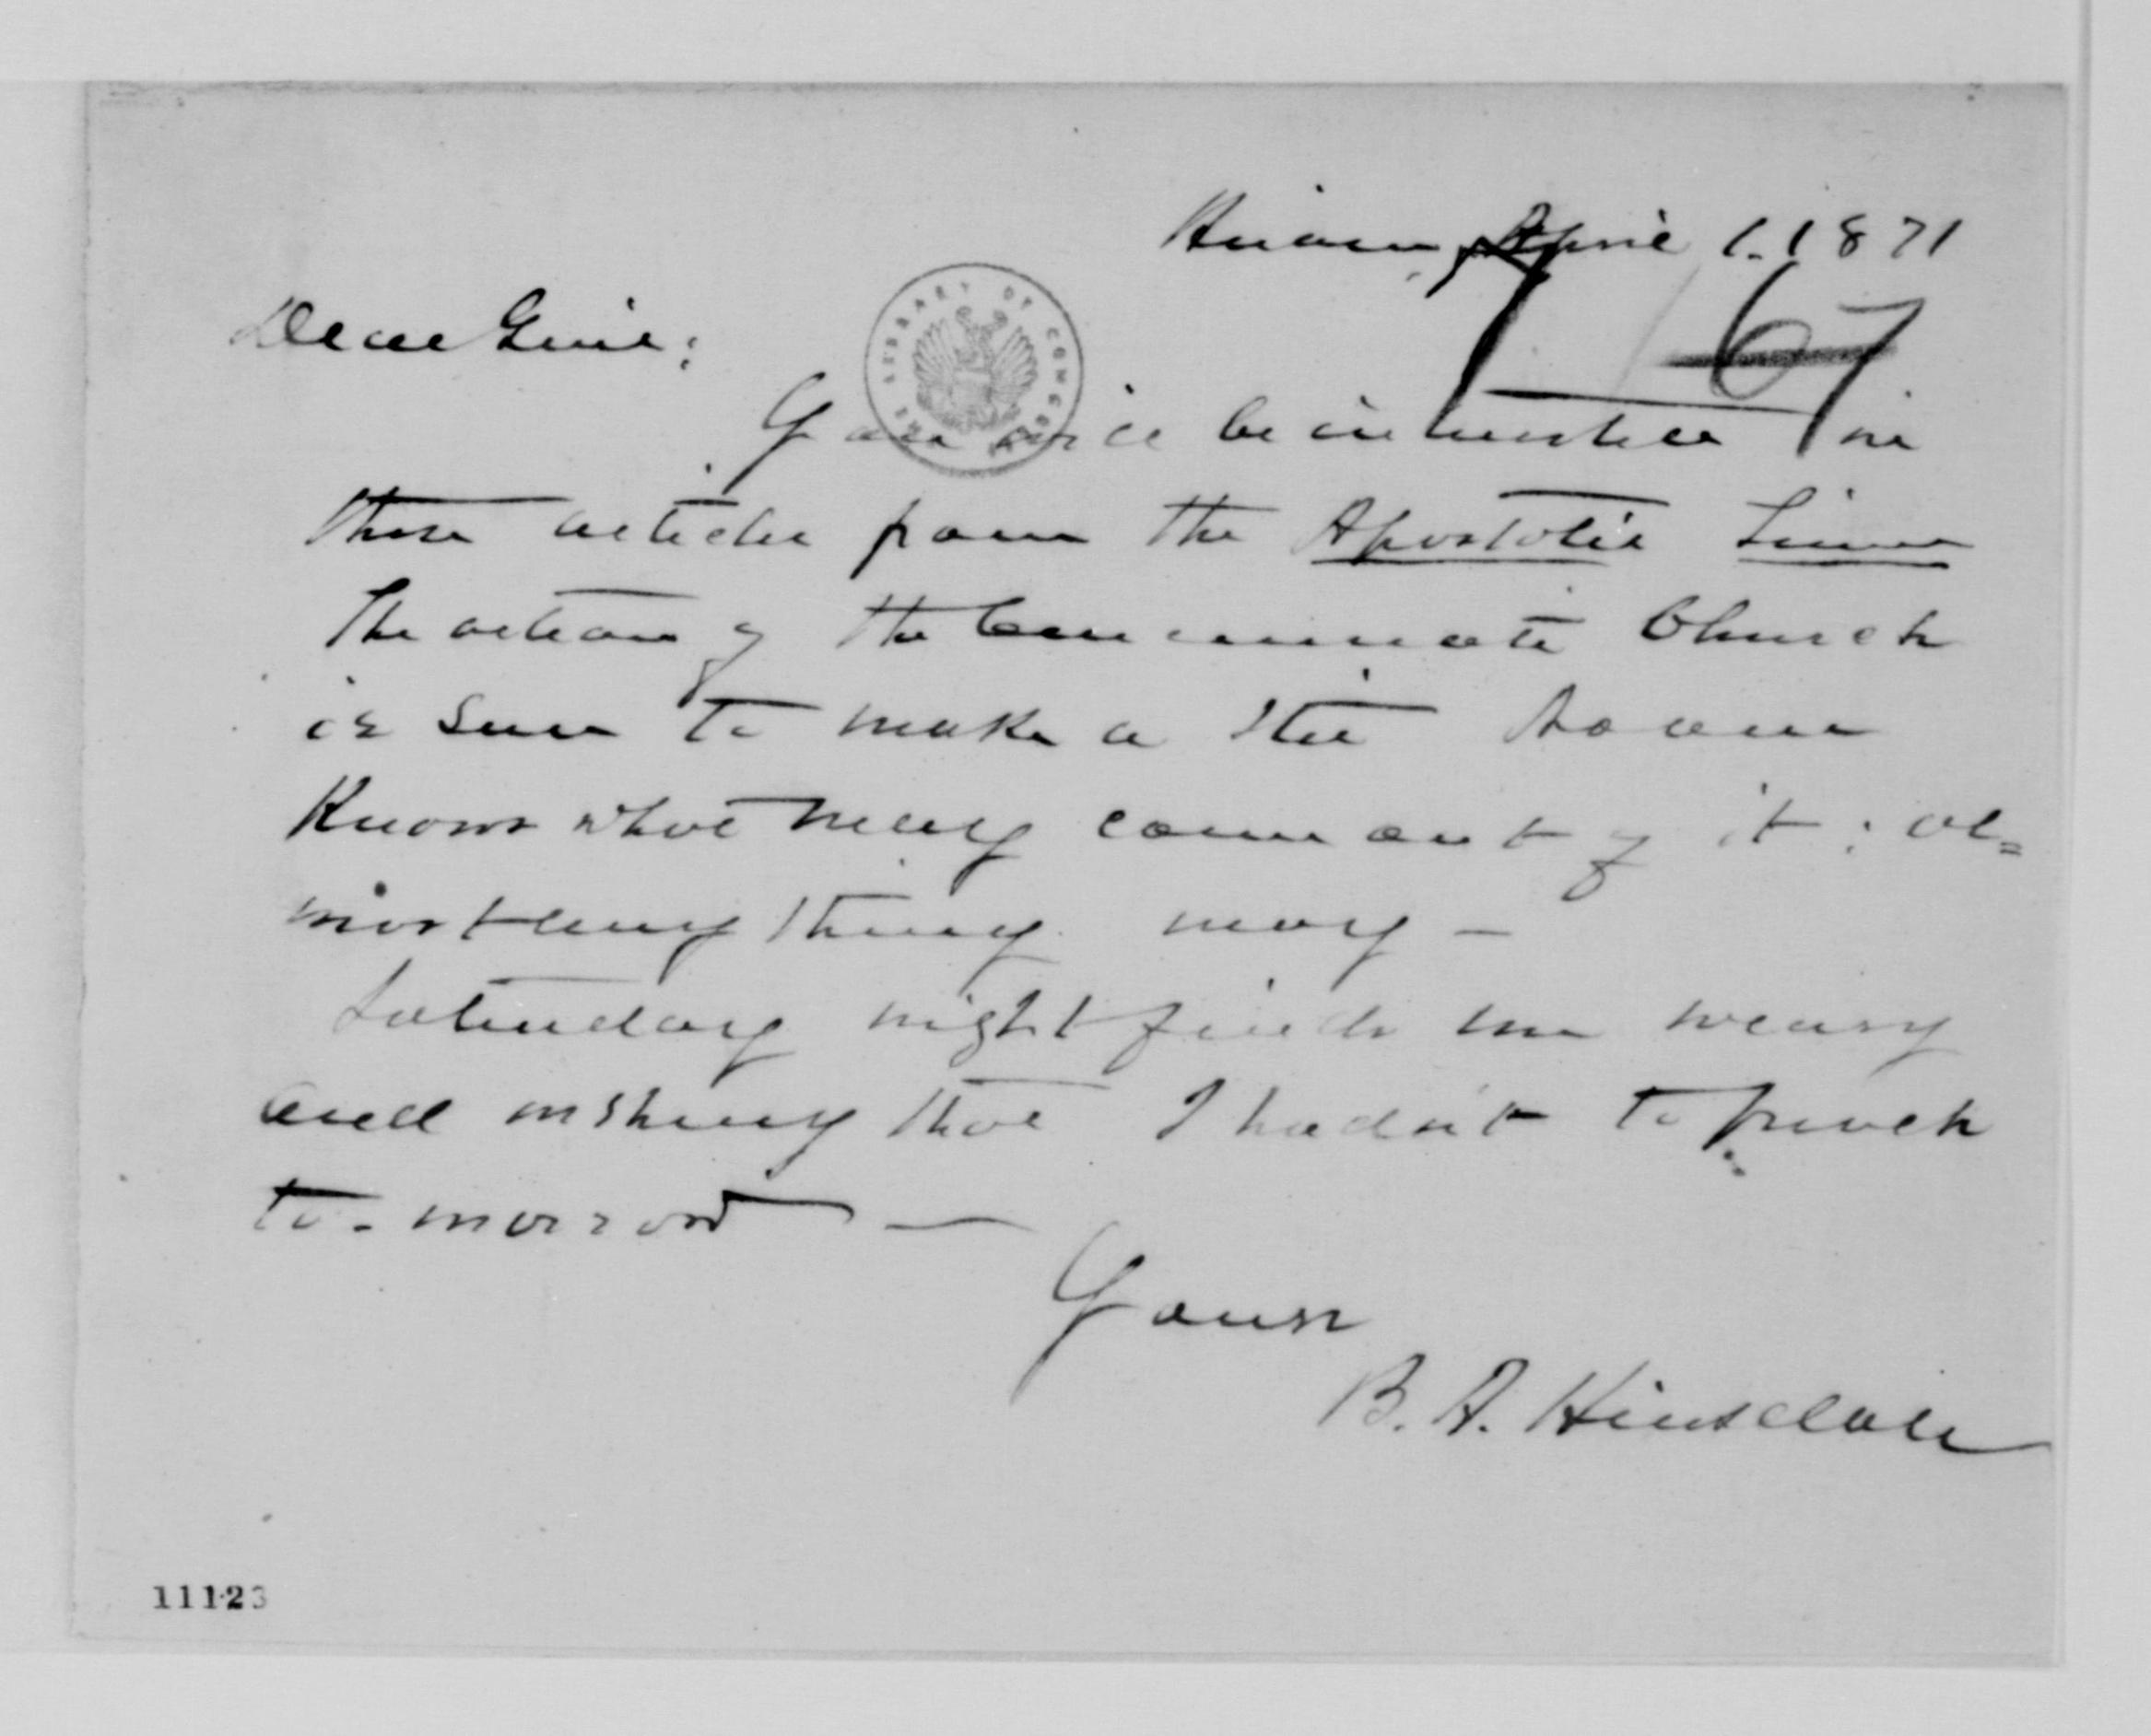 Hiram, April 1. 1871
7 67
Dear Gen'l:
THE LIBRARY OF CONGRESS
You will be interested in
these articles from the Apostolic Times
The action of the Cincinnati Church
is sure to make a stir. No one
knows what may come out of it; al=
most any thing may —
Saturday night finds me weary
and wishing that I hadn't to preach
to-morrow —
Yours
B. A. Hinsdale
11123